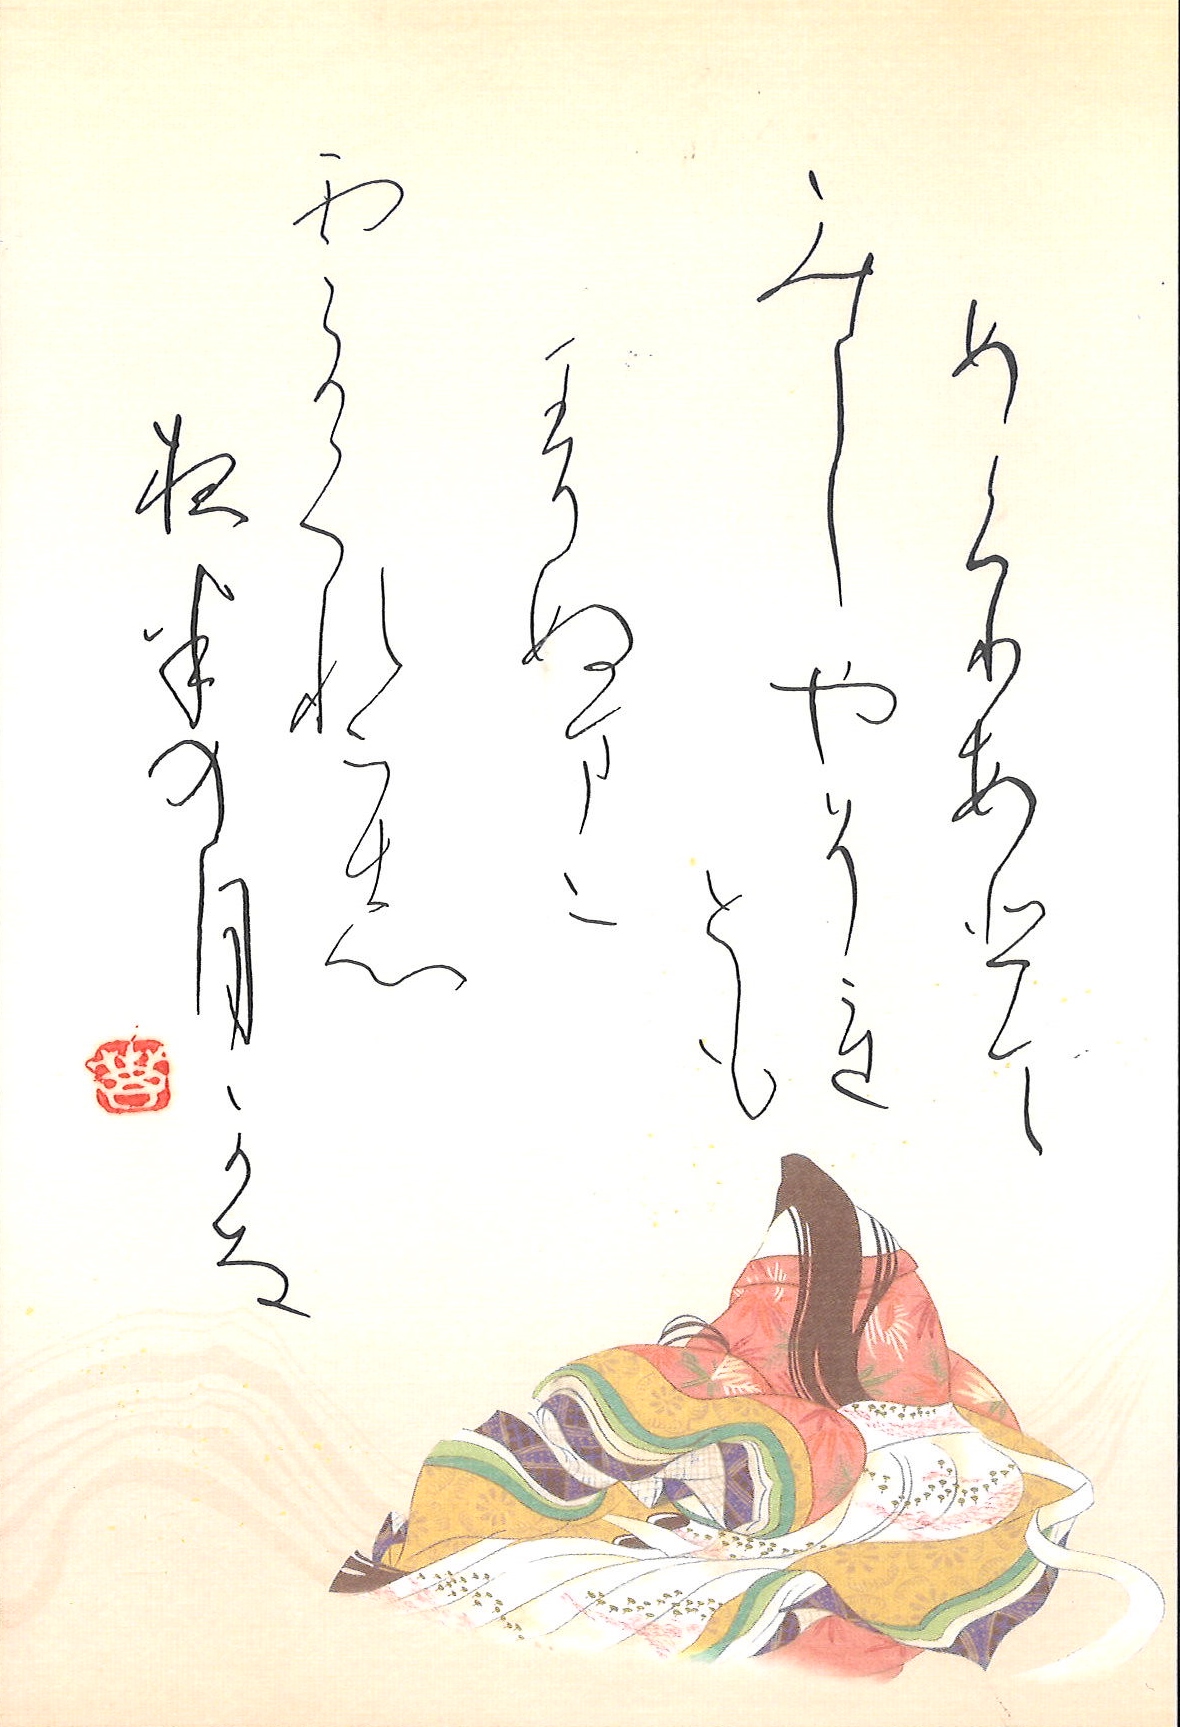 めくりあひて
みしやそれ
とも
わかぬまに
雲かくれにし
夜半の月かな